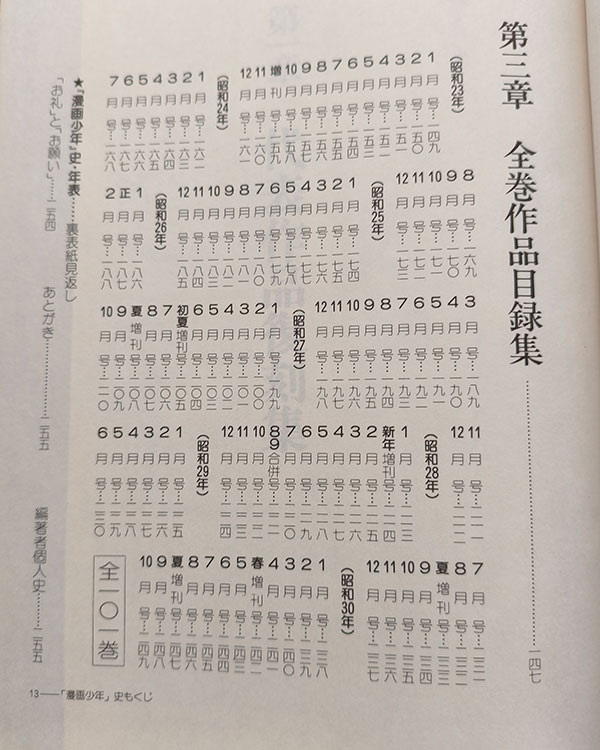 第三章　全巻作品目録集……一四七
(昭和23年)
1月号…一四九
2月号…一五〇
3月号…一五一
4月号…一五二
5月号…一五三
6月号…一五四
7月号…一五五
8月号…一五六
9月号…一五七
10月号…一五八
増刊号…一五九
11月号…一六〇
12月号…一六一
(昭和24年)
1月号…一六二
2月号…一六三
3月号…一六四
4月号…一六五
5月号…一六六
6月号…一六七
7月号…一六八
8月号…一六九
9月号…一七〇
10月号…一七一
11月号…一七二
12月号…一七三
(昭和25年)
1月号…一七四
2月号…一七五
3月号…一七六
4月号…一七七
5月号…一七八
6月号…一七九
7月号…一八〇
8月号…一八一
9月号…一八二
10月号…一八三
11月号…一八四
12月号…一八五
(昭和26年)
1月号…一八六
正月号…一八七
2月号…一八八
3月号…一八九
4月号…一九〇
5月号…一九一
6月号…一九二
7月号…一九三
8月号…一九四
9月号…一九五
10月号…一九六
11月号…一九七
12月号…一九八
(昭和27年)
1月号…一九九
2月号…二〇〇
3月号…二〇一
4月号…二〇二
5月号…二〇三
6月号…二〇四
初夏増刊号…二〇五
7月号…二〇六
8月号…二〇七
夏増刊号…二〇八
9月号…二〇九
10月号…二一〇
11月号…二一一
12月号…二一二
(昭和28年)
1月号…二一三
新年増刊号…二一四
2月号…二一五
3月号…二一六
4月号…二一七
5月号…二一八
6月号…二一九
7月号…二二〇
8 9合併号…二二一
10月号…二二二
11月号…二二三
12月号…二二四
(昭和29年)
1月号…二二五
2月号…二二六
3月号…二二七
4月号…二二八
5月号…二二九
6月号…二三〇
7月号…二三一
8月号…二三二
夏増刊号…二三三
9月号…二三四
10月号…二三五
11月号…二三六
12月号…二三七
(昭和30年)
1月号…二三八
2月号…二三九
3月号…二四〇
4月号…二四一
春増刊号…二四二
5月号…二四三
6月号…二四四
7月号…二四五
8月号…二四六
夏増刊号…二四七
9月号…二四八
10月号…二四九
全一〇一巻
★「漫画少年」史・年表……裏表紙見返し
「お礼」と「お願い」……二五四
あとがき……二五五
編著者個人史……二五五
13——「漫画少年」史もくじ